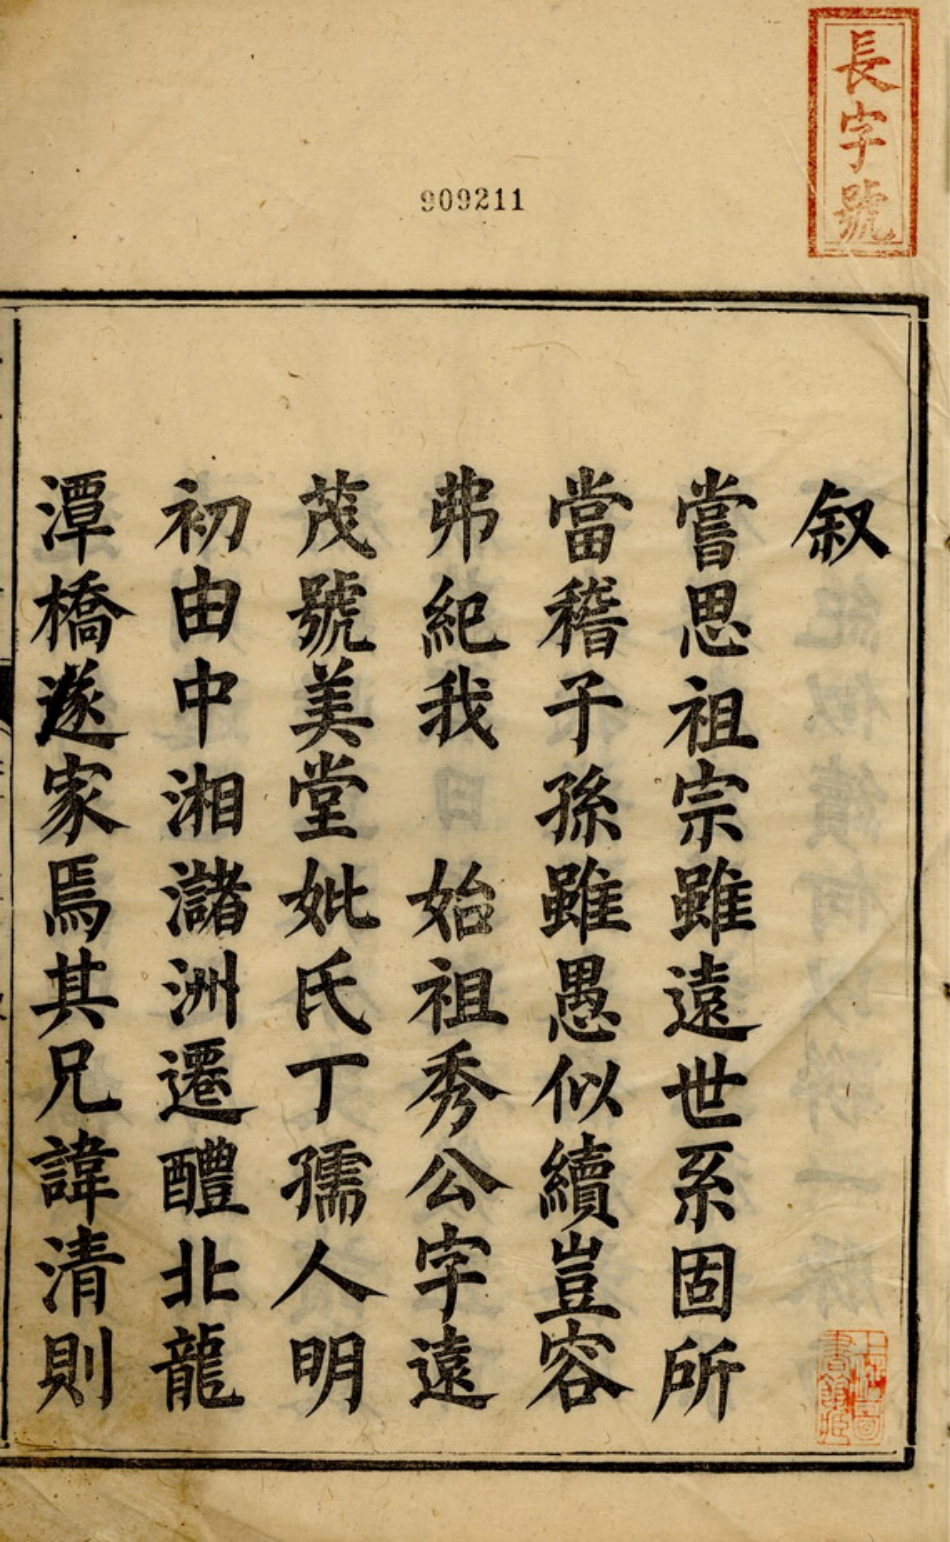 長字號
909211
叙
嘗思祖宗雖遠世系固所
當稽子孫雖愚似續豈容
弗紀我 始祖秀公字遠
茂號美堂妣氏丁孺人明
初由中湘瀦洲遷醴北龍
潭橋遂家焉其兄諱清則